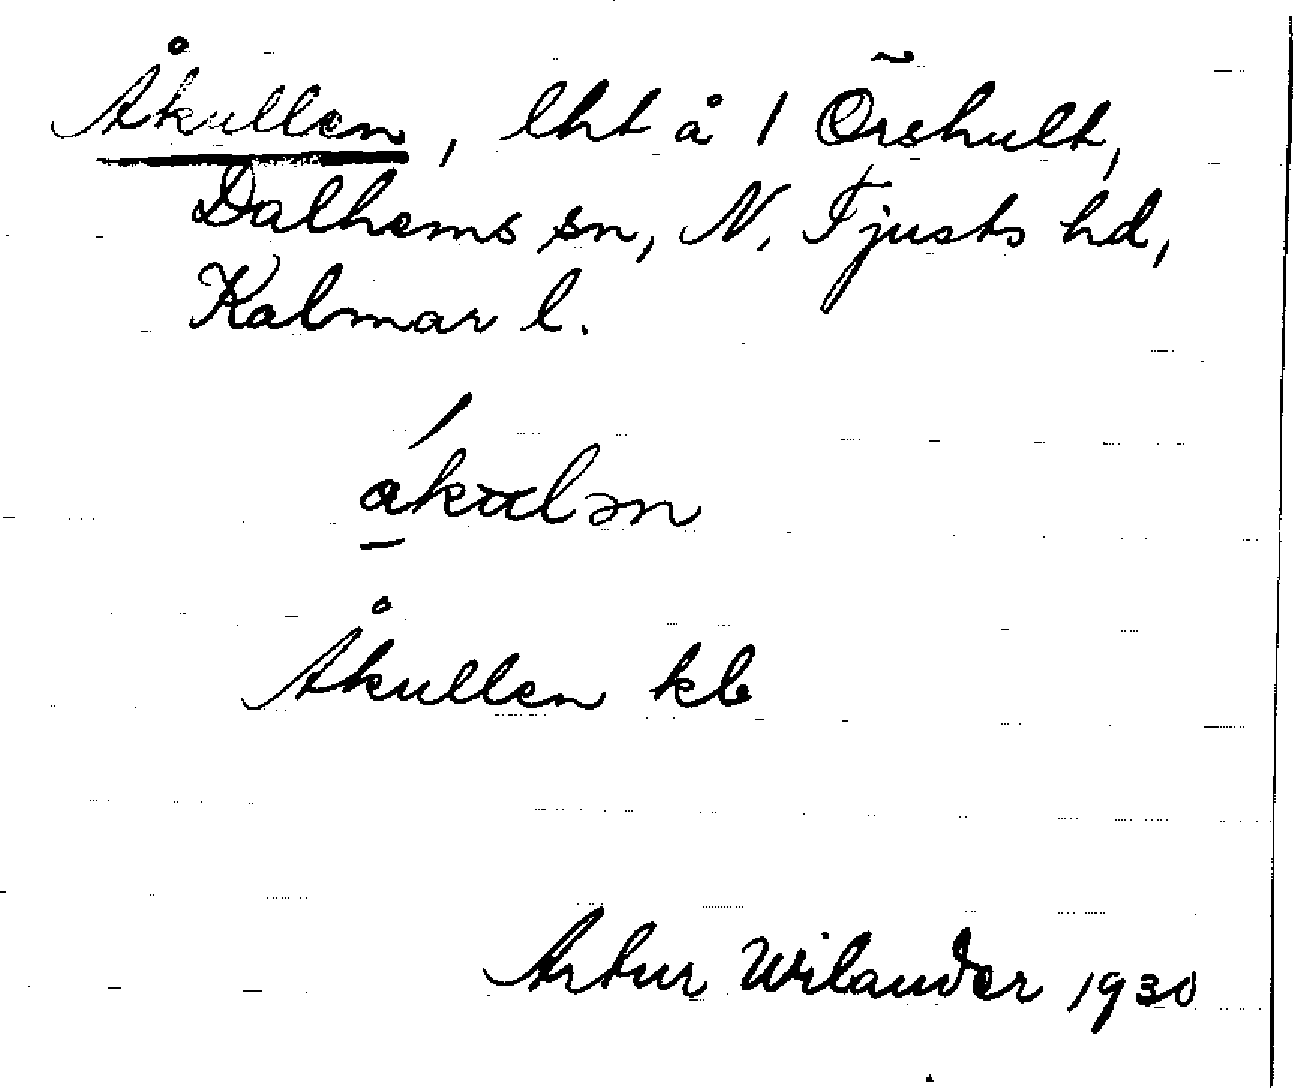 Åkullen, lht å 1 Örehult,
Dalhems sn, N. Tjusts hd,
Kalmar l.
Åkullen kb
Artur Wilander 1930